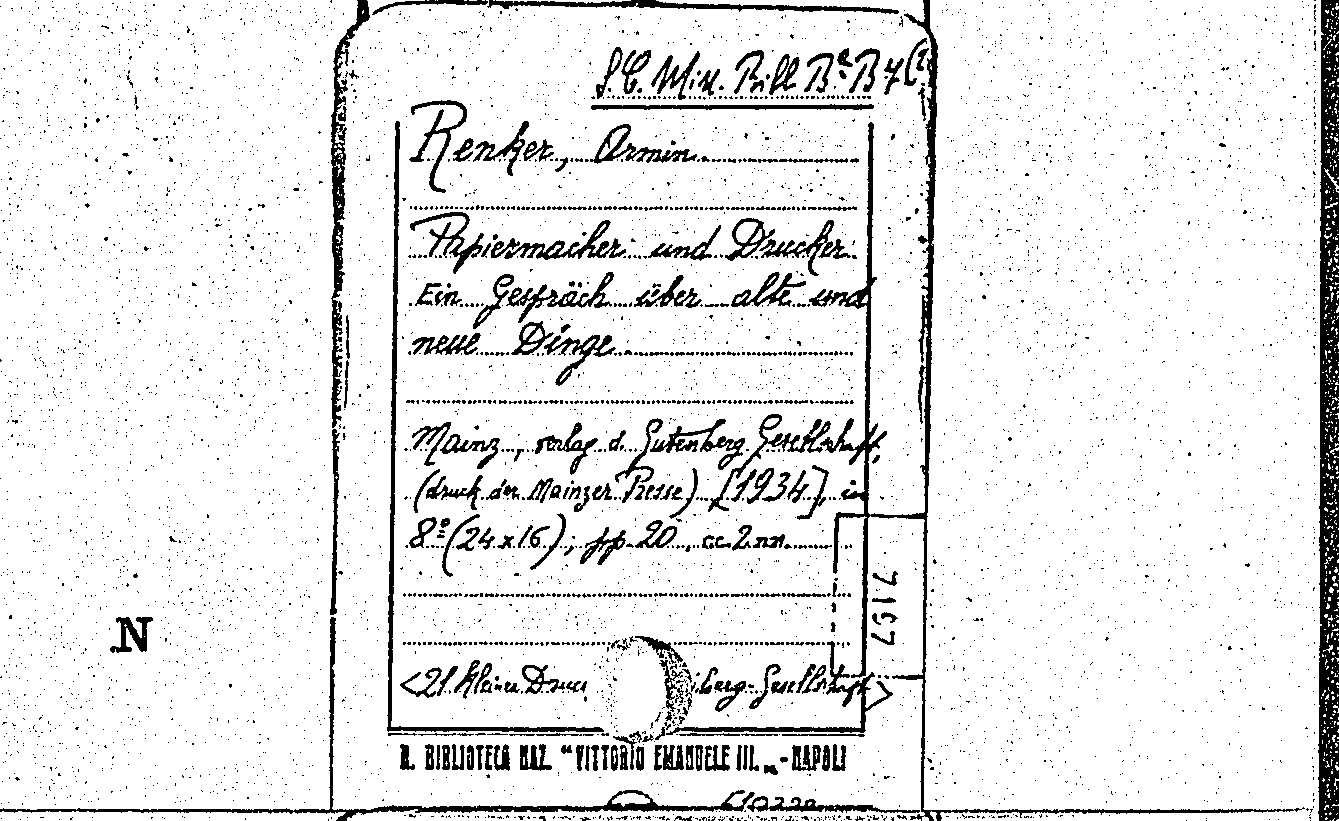 S.C. Misc. Bibl Bª B 4 (2
Renker, Armin.
Papiermacher und Drucker.
Ein Gespräch über alte und
neue Dinge.
Mainz, verlag d. Gutenberg Gesellschaft,
(druck der Mainzer Presse) [1934], in
8º (24x16); pp. 20, cc. 2 nn.
7157
N
<21 kleiner Druc berg-Gesellschaft>
R. BIBLIOTECA NAZ. "VITTORIO EMANUELE III„ - NAPOLI